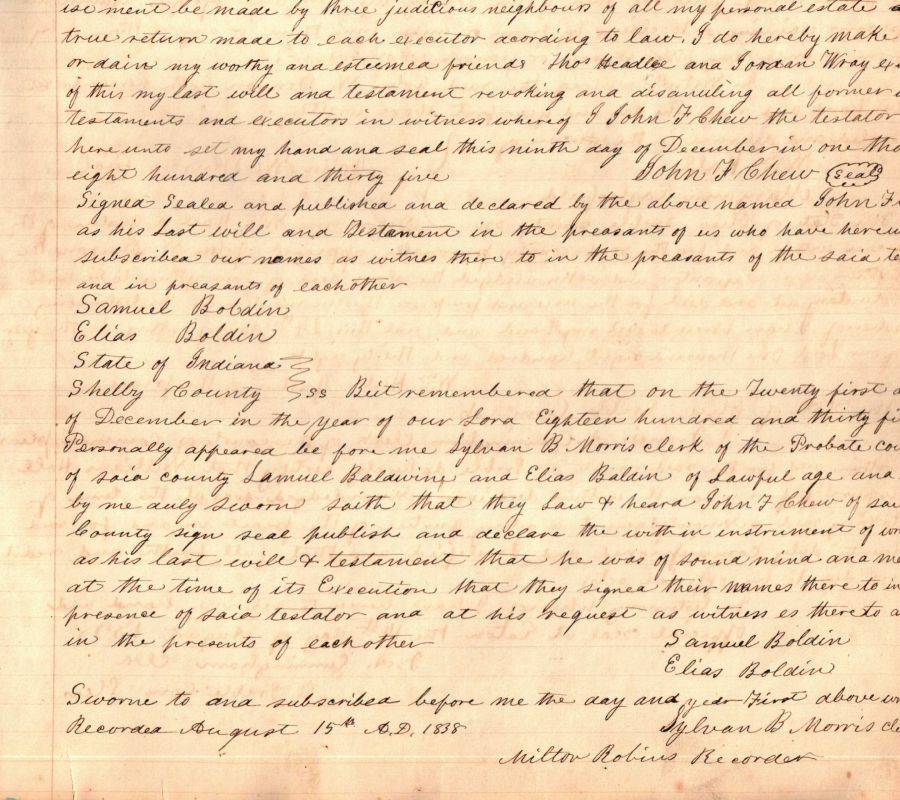 ise ment be made by three juditious neighbours of all my personal estate a
true return made to each executor acording to law. I do hereby make
or dain my worthy and esteemed friends Thos Headlee and Jordan Wray ex
of this my last will and testament revoking and disanuling all former
testaments and executors in witness whereof I John F Chew the testator
here unto set my hand and seal this ninth day of December in one tho
eight hundred and thirty five John F Chew Seal
Signed Sealed and published and declared by the above named John F
as his Last will and Testament in the preasants of us who have hereu
subscribed our names as witnes there to in the preasants of the said te
and in preasants of eachother
Samuel Boldin
Elias Boldin
State of Indiana
Shelby County ss Beit remembered that on the Twenty first d
of December in the year of our Lord Eighteen hundred and thirty fi
Personally appeared be fore me Sylvan B Morris clerk of the Probate cou
of said county Samuel Baldwine and Elias Baldin of Lawful age and
by me duly sworn saith that they Saw & heard John F Chew of sai
County sign seal publish and declare the within instrument of wr
as his last will & testament that he was of sound mind and me
at the time of its Execution that they signed their names there to in
presence of said testator and at his request as witness es there to a
in the presents of eachother Samuel Boldin
Elias Boldin
Sworne to and subscribed before me the day and year First above wr
Recorded August 15th A.D. 1838 Sylvan B Morris cle
Milton Robins Recorder